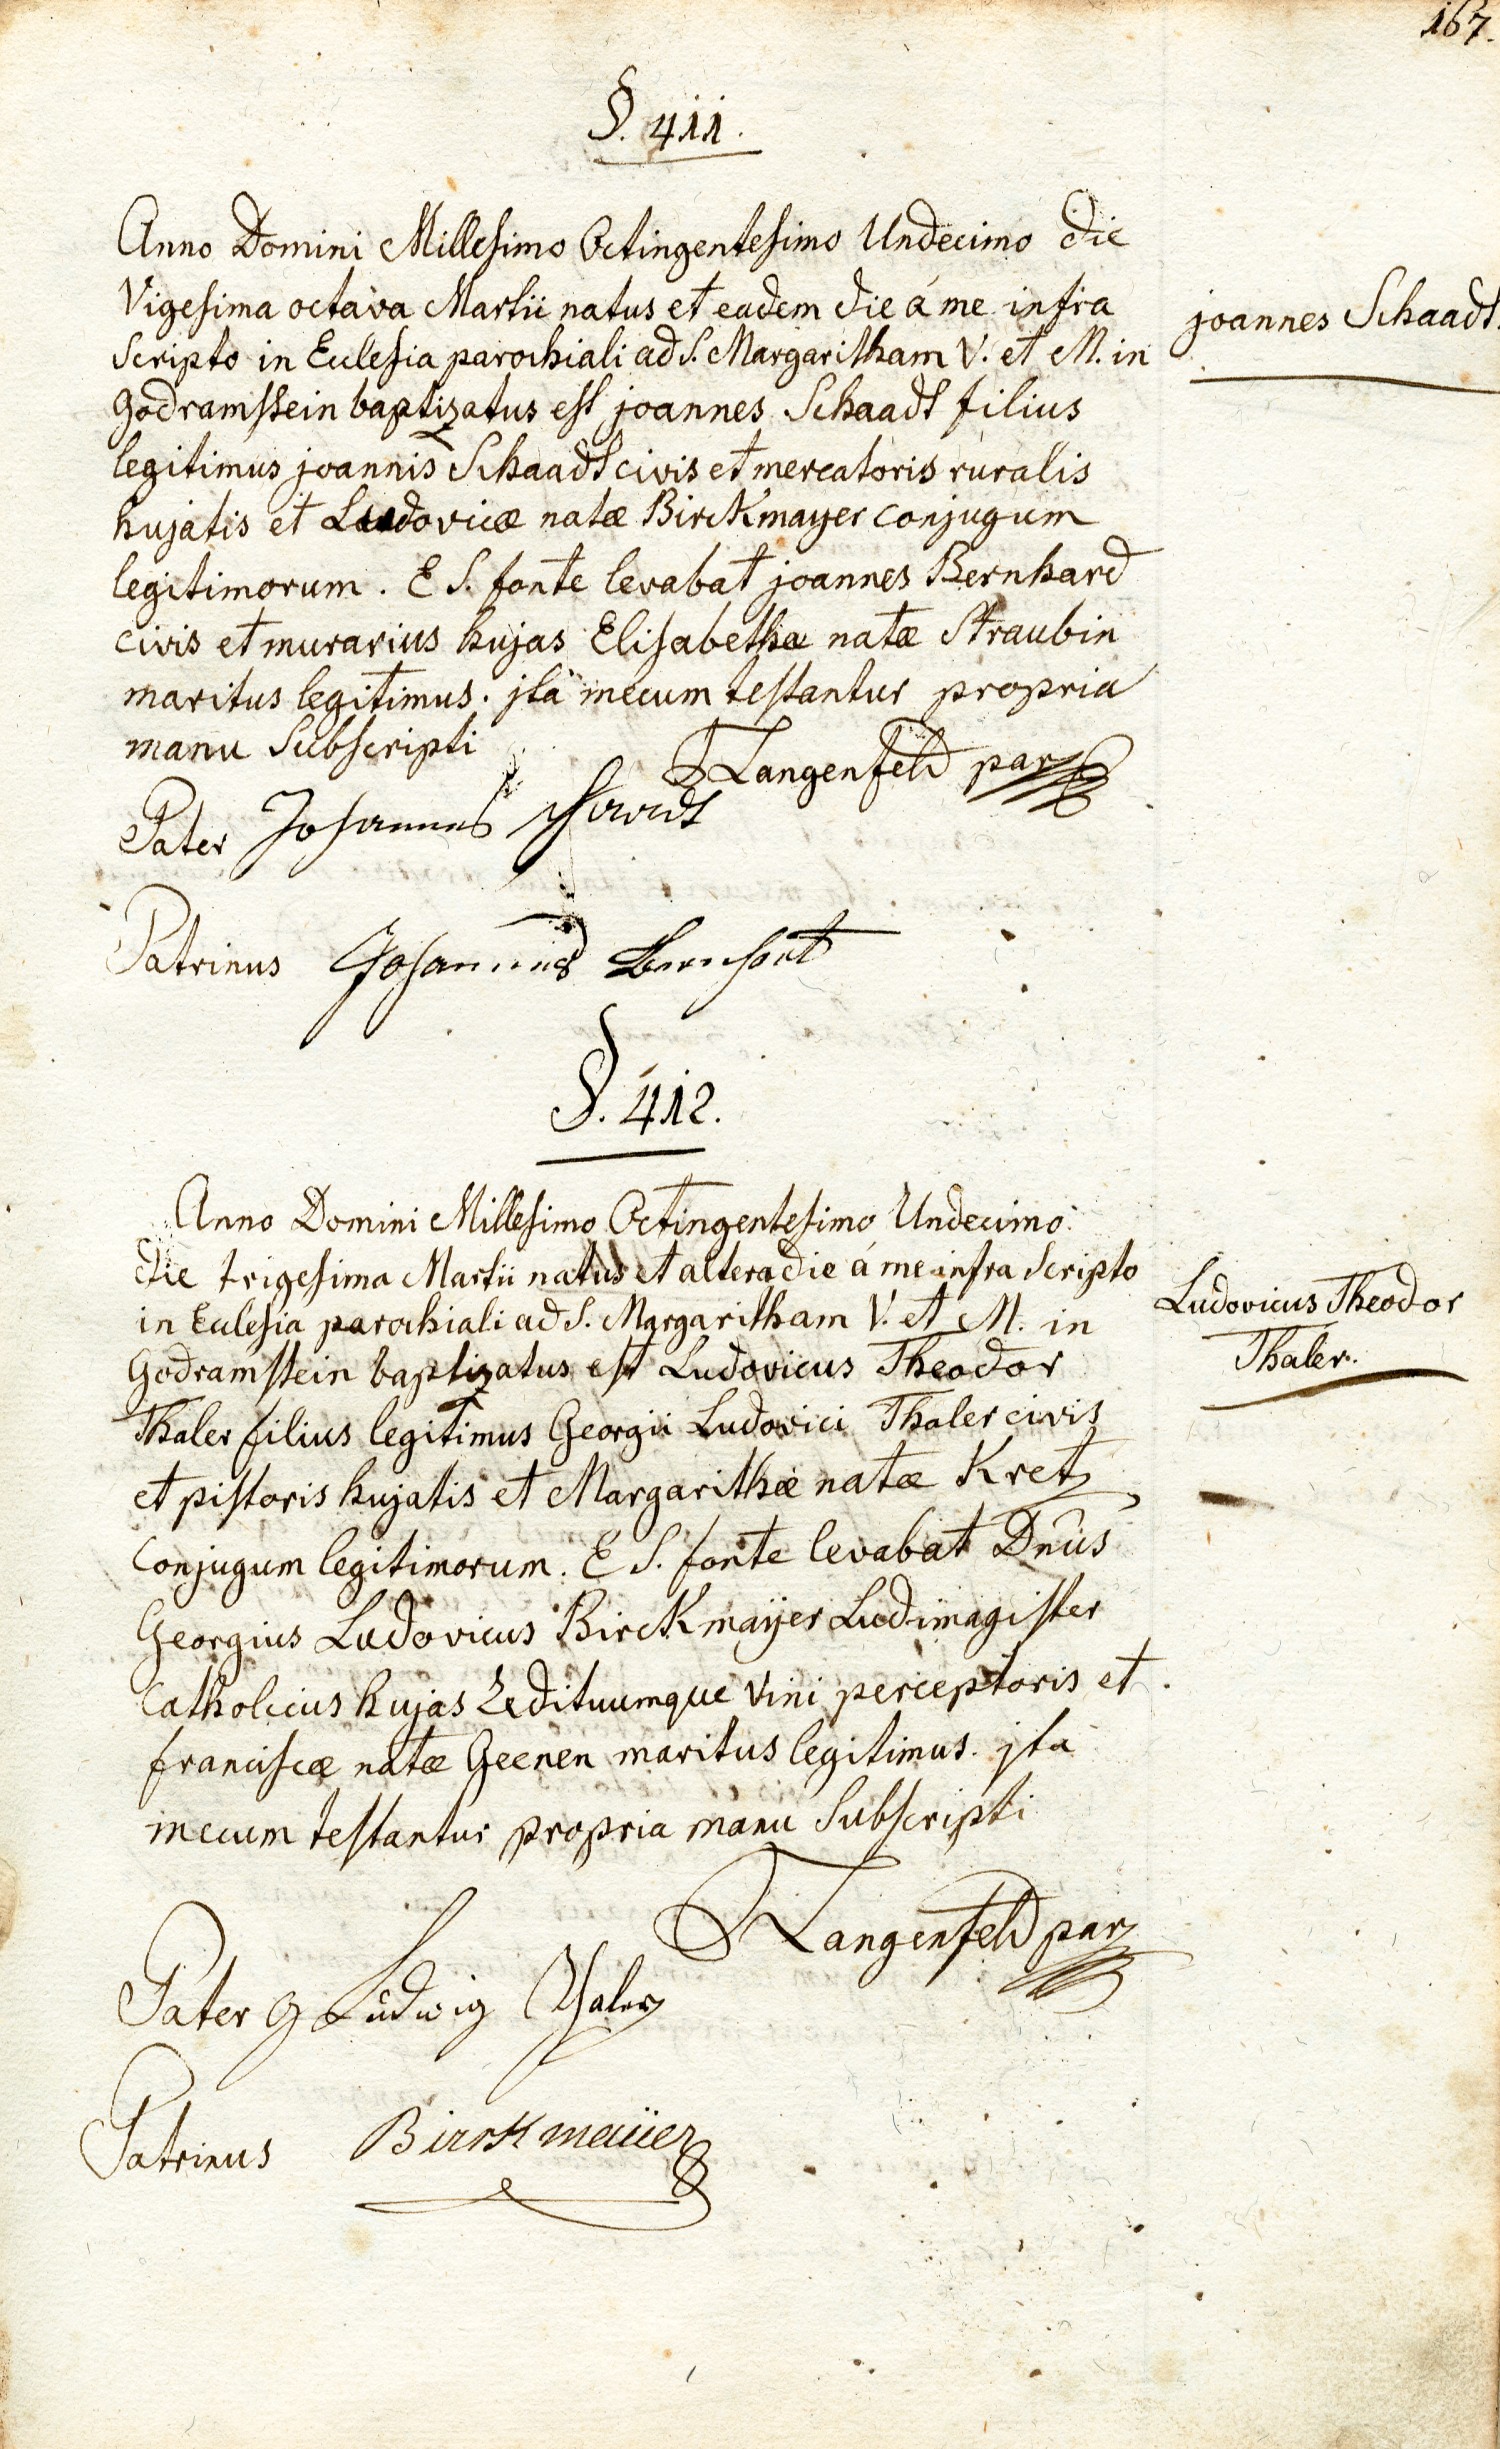 167.
§. 411.
Anno Domini Millesimo Octingentesimo Undecimo die
Vigesima octava Martii natus et eadem die á me infra
scripto in Eclesia parochiali ad S. Margaritham V. et M. in
Godramstein baptizatus est joannes Schaadt filius
legitimus joannis Schaadt civis et mercatoris ruralis
hujatis et Ludovicæ natæ Birckmayer conjugum
legitimorum. E S. fonte levabat joannes Bernhard
civis et murarius hujas Elisabethæ natæ Straubin
maritus legitimus. jta mecum testantur propria
manu subscripti
joannes Schaadt
Langenfeld par
Pater Johannes Schaadt
Patrinus Johannes Bernhart
§. 412.
Anno Domini Millesimo Octingentesimo Undecimo
die trigesima Martii natus et altera die á me infra scripto
in Eclesia parochiali ad S. Margaritham V. et M. in
Godramstein baptizatus est Ludovicus Theodor
Thaler filius legitimus Georgii Ludovici Thaler civis
et pistoris hujatis et Margarithæ natæ Kretz
conjugum legitimorum. E S. fonte levabat Dnus
Georgius Ludovicus Birckmaÿer Ludimagister
catholicus hujas Ædituumque vini perceptoris et
franciscæ natæ Geenen maritus legitimus. jta
mecum testantur propria manu subscripti
Ludovicus Theodor
Thaler.
Langenfeld par
Pater G Ludwig Thaler
Patrinus Birckmaÿer